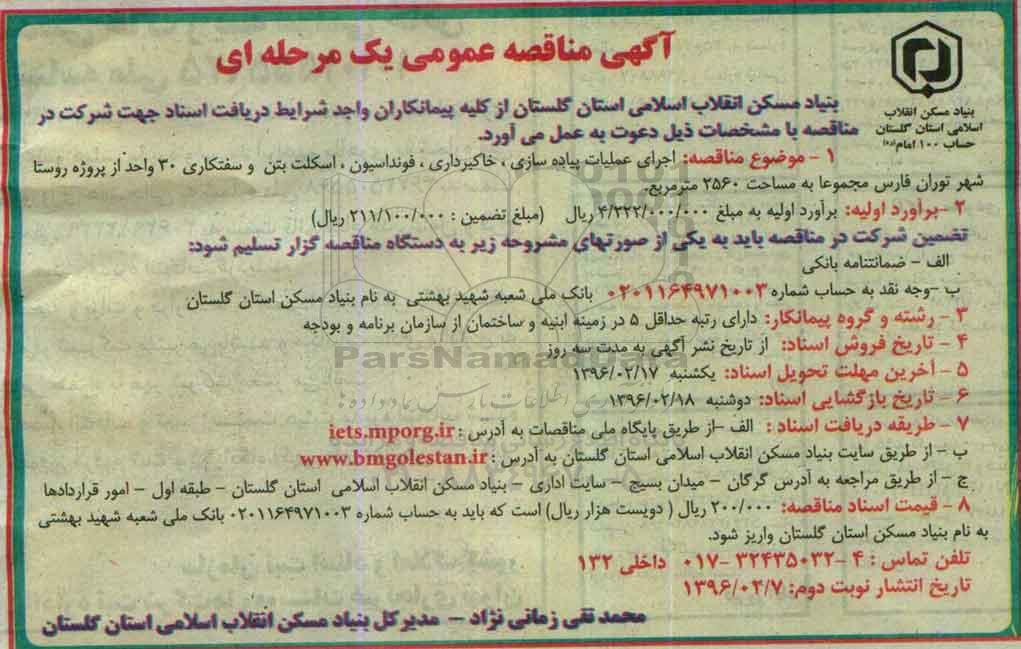 آگهی مناقصه عمومی یک مرحله ای
بنیاد مسکن انقلاب
اسلامی استان گلستان
حساب ۱۰۰ امام(ره)
بنیاد مسکن انقلاب اسلامی استان گلستان از کلیه پیمانکاران واجد شرایط دریافت اسناد جهت شرکت در
مناقصه با مشخصات ذیل دعوت به عمل می آورد.
۱ - موضوع مناقصه: اجرای عملیات پیاده سازی ، خاکبرداری ، فونداسیون ، اسکلت بتن و سفتکاری ۳۰ واحد از پروژه روستا
شهر توران فارس مجموعا به مساحت ۲۵۶۰ مترمربع.
۲ -برآورد اولیه: برآورد اولیه به مبلغ ۴/۲۲۲/۰۰۰/۰۰۰ ریال (مبلغ تضمین : ۲۱۱/۱۰۰/۰۰۰ ریال)
تضمین شرکت در مناقصه باید به یکی از صورتهای مشروحه زیر به دستگاه مناقصه گزار تسلیم شود:
الف - ضمانتنامه بانکی
ب -وجه نقد به حساب شماره ۰۲۰۱۱۶۴۹۷۱۰۰۳ بانک ملی شعبه شهید بهشتی به نام بنیاد مسکن استان گلستان
۳ - رشته و گروه پیمانکار: دارای رتبه حداقل ۵ در زمینه ابنیه و ساختمان از سازمان برنامه و بودجه
۴ - تاریخ فروش اسناد: از تاریخ نشر آگهی به مدت سه روز
ParsNamaddata
۵ - آخرین مهلت تحویل اسناد: یکشنبه ۱۳۹۶/۰۲/۱۷
۶ - تاریخ بازگشایی اسناد: دوشنبه ۱۳۹۶/۰۲/۱۸
۷ - طریقه دریافت اسناد : الف -از طریق پایگاه ملی مناقصات به آدرس : iets.mporg.ir
ب - از طریق سایت بنیاد مسکن انقلاب اسلامی استان گلستان به آدرس : www.bmgolestan.ir
ج - از طریق مراجعه به آدرس گرگان - میدان بسیج - سایت اداری - بنیاد مسکن انقلاب اسلامی استان گلستان - طبقه اول - امور قراردادها
۸ - قیمت اسناد مناقصه: ۲۰۰/۰۰۰ ریال ( دویست هزار ریال) است که باید به حساب شماره ۰۲۰۱۱۶۴۹۷۱۰۰۳ بانک ملی شعبه شهید بهشتی
به نام بنیاد مسکن استان گلستان واریز شود.
تلفن تماس : ۴ -۳۲۴۳۵۰۳۲ -۰۱۷ داخلی ۱۳۲
تاریخ انتشار نوبت دوم: ۱۳۹۶/۰۲/۷
محمد تقی زمانی نژاد - مدیرکل بنیاد مسکن انقلاب اسلامی استان گلستان